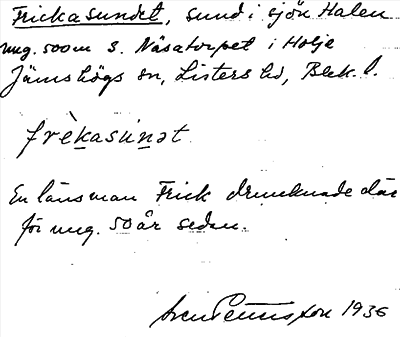 Frickasundet, sund i sjön Halen
ung. 500 m S. Näsatorpet i Holje
Jämshögs sn, Listers hd, Blek. l.
frèkasunət
En länsman Frick drunknade där
för ung. 50 år sedan.
1936